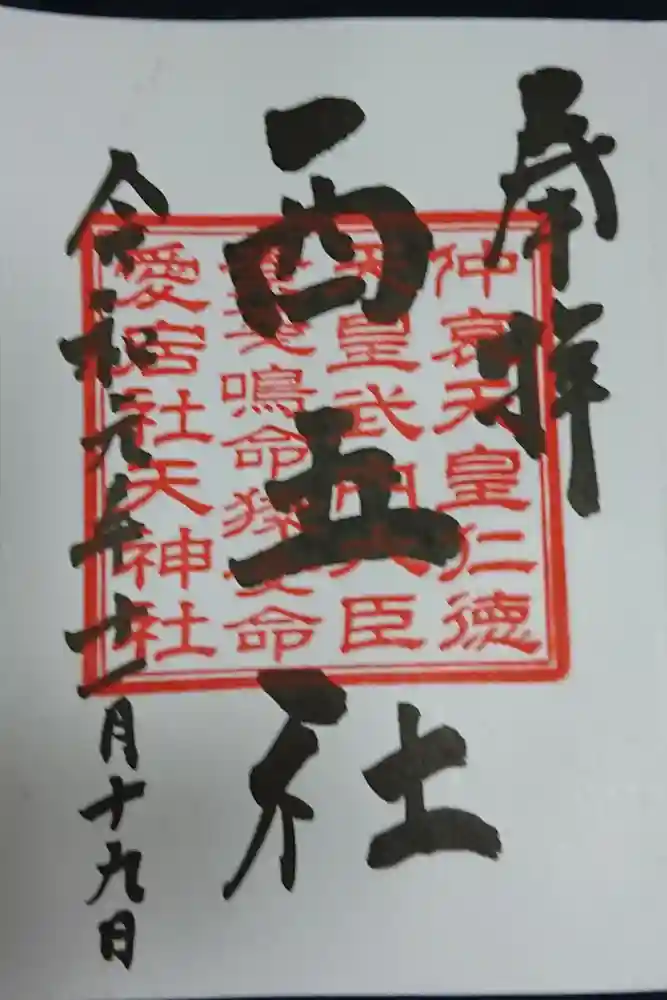 奉拝
西五社
令和元年十一月十九日
仲哀天皇仁徳
天皇武内大臣
素戔鳴命猿女命
愛宕社天神社